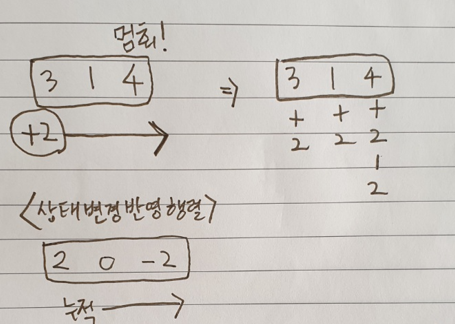 멈춰!
3 1 4 ⇒ 3 1 4
+2 → + + +
2 2 2
1
2
<상태변경반영행렬>
2 0 -2
누적 →